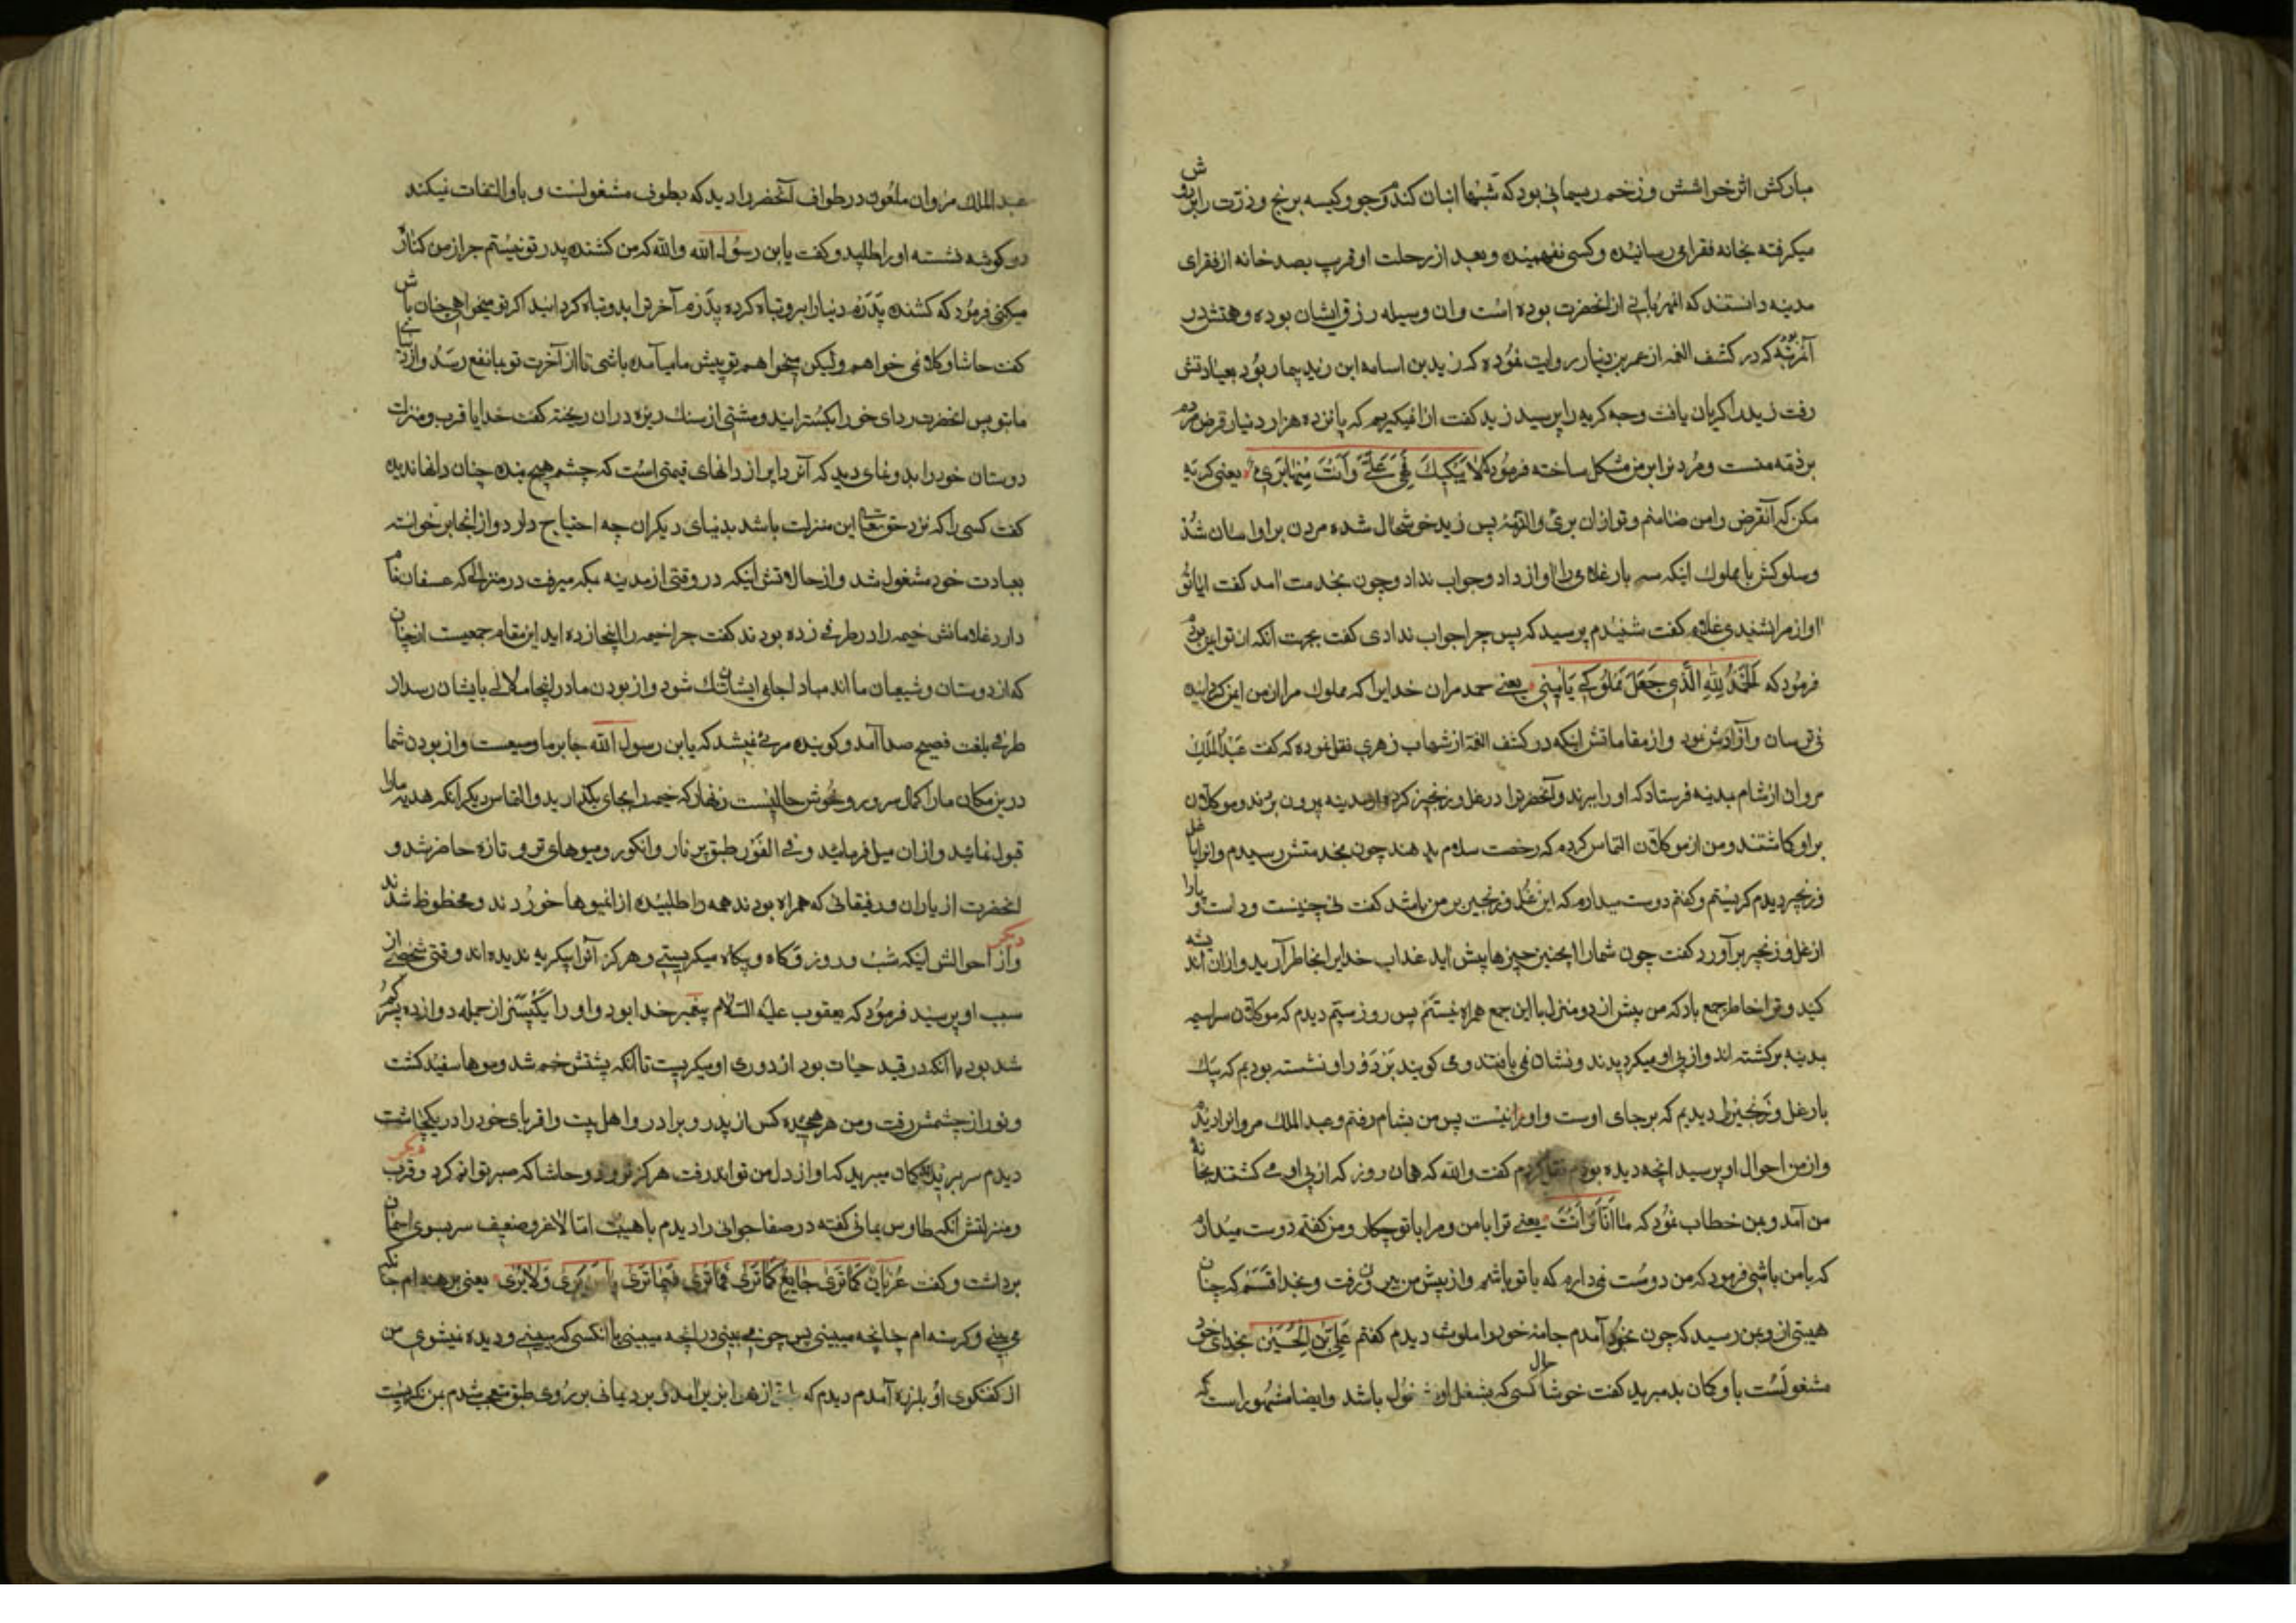 مبارکش اثر خواشش و زخم ریسمانی بود که شبها انبان کندم و جو و کیسه برنج و ذرّت را بر دوش
میکرفته بخانه فقرا می رسانیده و کسی نفهمیده و بعد از رحلت او قریب بصد خانه از فقرای
مدینه دانستند که انمهربانی از انحضرت بوده است و ان وسیله رزق ایشان بوده و همتش در
آنمرتبه بوده که در کشف الغمه از عمر بن دنیار روایت نموده که زید بن اسامه ابن زید بیمار بود بعیادتش
رفت زید را کریان یافت وجه کریه را پرسید زید کفت از ان میکریم که پانزده هزار دنیار قرض مردم
بر ذمه منست و مردنرا بر من مشکل ساخته فرمود که لا تبک فهی علیّ و انت منها بری یعنی کریه
مکن که آنقرض را من ضامنم و تو از ان بری والذمّه پس زید خوشحال شده مردن بر او اسان شد
وسلوکش با مملوک اینکه سه بار غلامی را اواز داد و جواب نداد و چون بخدمت امد کفت ایا تو
اواز مرا نشنیدی غلام کفت شنیدم پرسید که پس چرا جواب ندادی کفت بجهت انکه از تو ایمن بودم
فرمود که الحمد لله الذی جعل مملوکی یامننی یعنی حمد مر ان خدایرا که مملوک مرا از من ایمن کردانیده
نی ترسان و آزادش نمود و از مقاماتش اینکه در کشف الغمه از شهاب زهری نقل نموده که کفت عبد الملک
مروان از شام بمدینه فرستاد که او را ببرند و آنحضرترا در غل و زنجیر کرده از مدینه بیرون بردند و موکلان
بر او کاشتند و من از موکلان التماس کردم که رخصت سلام بدهند چون بخدمتش رسیدم و انرا با غل
و زنجیر دیدم کریستم و کفتم دوست میدارم که این غل و زنجیر بر من باشد کفت نی چنینست و دست و پا را
از غل و زنجیر برآورد و کفت چون شمارا اینچنین چیزها پیش اید عذاب خدایرا بخاطر آرید و از ان اندیشه
کنید و ترا خاطر جمع باد که من بیش از دو منزل با این جمع همراه نیستم پس روز سیّم دیدم که موکلان سراسیمه
بمدینه برکشته اند و از پی او میکردیدند و نشان نمی یافتند و می کویند بر دَور او نشسته بودیم که یک
بار غل و زنجیر را دیدیم که بر جای اوست و او را نیست پس من بشام رفتم و عبد الملک مروانرا دیدم
و از من احوال او پرسید انچه دیده بودم نقل کردم کفت والله که همان روز که از پی او می کشتند بخانه
من آمد و بمن خطاب نمود که ما انا و انت یعنی ترا با من و مرا با تو چکار و من کفتم دوست میدارم
که با من باشی فرمود که من دوست نمی دارم که با تو باشم و از پیش من بیرون رفت و بخدا قسم که چنان
هیبتی از و بمن رسید که چون بخود آمدم جامۀ خود را ملوث دیدم کفتم علی بن الحسین بخدای خود
مشغولست باو کمان بد مبرید کفت خوشا حال کسی که بشغل او مشغول باشد و ایضا مشهور است که
عبد الملک مروان ملعون در طواف آنحضرترا دید که بطوف مشغولست و باو التفات نمیکند
در کوشه نشسته او را طلبید و کفت یا بن رسول الله والله که من کشنده پدر تو نیستم چرا از من کناره
میکنی فرمود که کشنده پدرم دنیا را برو تباه کرده پدرم آخرترا بدو تباه کردانید اکر تو میخواهی چنان باش
کفت حاشا و کلا نمی خواهم ولیکن میخواهم تو پیش ما میآمده باشی تا از آخرت تو بما نفع رسد و از دنیای
ما بتو پس انحضرت ردای خود را بکسترانید و مشتی از سنک ریزه در ان ریخته کفت خدایا قرب و منزلت
دوستان خود را بدو نمای دید که آنردا پر از دانهای قیمتی است که چشم هیچ بنده چنان دانها ندیده
کفت کسی را که نزد حق تعالی این منزلت باشد بدنیای دیکران چه احتیاج دارد و از انجا برخواسته
بعبادت خود مشغول شد و از حالاتش اینکه در وقتی از مدینه بمکه میرفت در منزلی که عسفان نام
دارد غلامانش خیمه را در طرفی زده بودند کفت چرا خیمه را اینجا زده اید این مقام جمعیست از جنان
که از دوستان و شیعیان ما اند مبادا جای ایشان تنک شود و از بودن ما در اینجا ملالی بایشان رسد از
طرفی بلغت فصیح صدا آمد و کوینده مرئی نمیشد که یا بن رسول الله جا بر ما وسیعست و از بودن شما
درین مکان ما را کمال سرور و خوش حالیست زنهار که خیمه را بجای بکذارید و التماس دیکر انکه هدیه ما را
قبول نمائید و از ان میل فرمائید و فی الفور طبق پر نار و انکور و میوهای تر و تازه حاضر شد و
انحضرت از یاران و رفیقانی که همراه بودند همه را طلبیده از انمیوها خوردند و محظوظ شدند
دیکر و از احوالش اینکه شب و روز و کاه و بیکاه میکریستی و هرکز آنرا بیکریه ندیده اند وقتی شخصی از
سبب او پرسید فرمود که یعقوب علیه السلام پیغمبر خدا بود و او را یک پسر از جمله دوازده پسر کم
شد بود با انکه در قید حیات بود از دوری او میکریست تا انکه پشتش خم شد و موها سفید کشت
و نور از چشمش رفت و من هیجده کس از پدر و برادر و اهل بیت و اقربای خود را در یکچاشت
دیدم سر بریده کمان میبرید که او از دل من تواند رفت هرکز نرود و حاشا که صبر توانم کرد دیکر و قرب
و منزلتش آنکه طاوس یمانی کفته در صفا جوانی را دیدم با هیبت امّا لاغر و ضعیف سر بسوی اسمان
برداشت و کفت عریان کما تری جایع کما تری فما تری فیما تری یا من یَری و لا یُری یعنی برهنه ام چنانکه
می بینی و کرسنه ام چنانچه میبینی پس چون می بینی در انچه میبینی یا انکسی که میبینی و دیده نمیشوی من
از کفتکوی او بلرزه آمدم دیدم که از هوا بزیر آمد و برد یمانی بر روی طبق متعجب شدم بمن نکریست